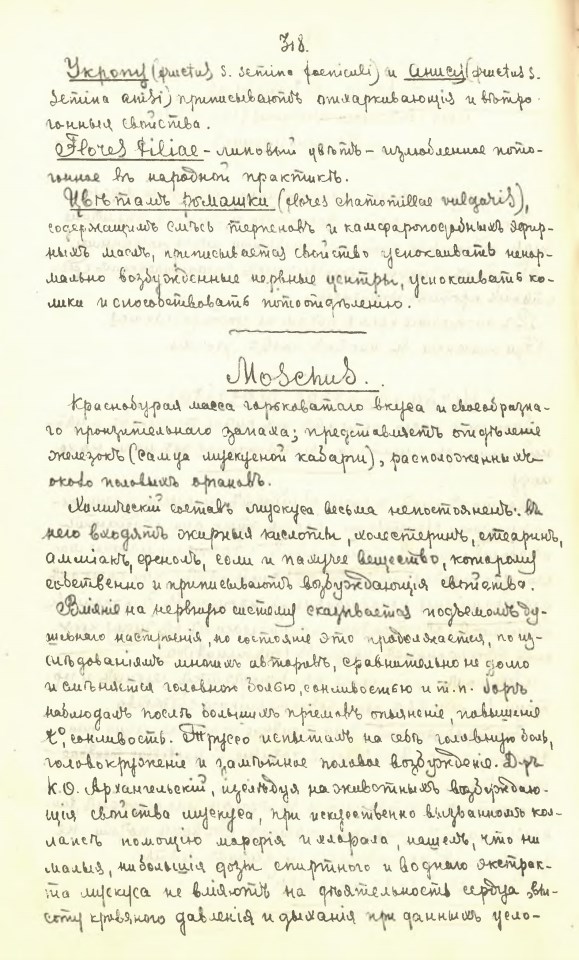 318.
Укропу (fructus s. semina foeniculi) и анису (fructus s.
semina anisi) приписываютъ отхаркивающія и вѣтро-
гонныя свойства.
Flores Tiliae - липовый цвѣтъ - излюбленное пото-
гонное въ народной практикѣ.
Цвѣтамъ ромашки (flores chamomillae vulgaris),
содержащимъ смѣсь терпеновъ и камфароподобныхъ эфир-
ныхъ маслъ, приписывается свойство успокаивать ненор-
мально возбужденные нервные центры, успокаивать ко-
лики и способствовать потоотдѣленію.
Moschus.
Краснобурая масса горьковатаго вкуса и своеобразна-
го пронзительнаго запаха; представляетъ отдѣленіе
железокъ (самца мускусной кабарги), расположенныхъ
около половыхъ органовъ.
Химическій составъ мускуса весьма непостояненъ: въ
него входятъ жирныя кислоты, холестеринъ, стеаринъ,
амміакъ, фенолъ, соли и пахучее вещество, которому
собственно и приписываютъ возбуждающія свойства.
Вліяніе на нервную систему сказывается подъемомъ ду-
шевнаго настроенія, но состояніе это продолжается, по из-
слѣдованіямъ многихъ авторовъ, сравнительно не долго
и смѣняется головною болью, сонливостью и т. п.
наблюдалъ послѣ большихъ пріемовъ опьяненіе, повышеніе
t°, сонливость. Труссо испыталъ на себѣ головную боль,
головокруженіе и замѣтное половое возбужденіе. Д-ръ
К.О. Архангельскій, изслѣдуя на животныхъ возбуждаю-
щія свойства мускуса, при искусственно вызванномъ кол-
лапсѣ помощію морфія и хлорала, нашелъ, что ни
малыя, ни большія дозы спиртного и водного экстрак-
та мускуса не вліяютъ на дѣятельность сердца, вы-
соту кровяного давленія и дыханія при данныхъ усло-